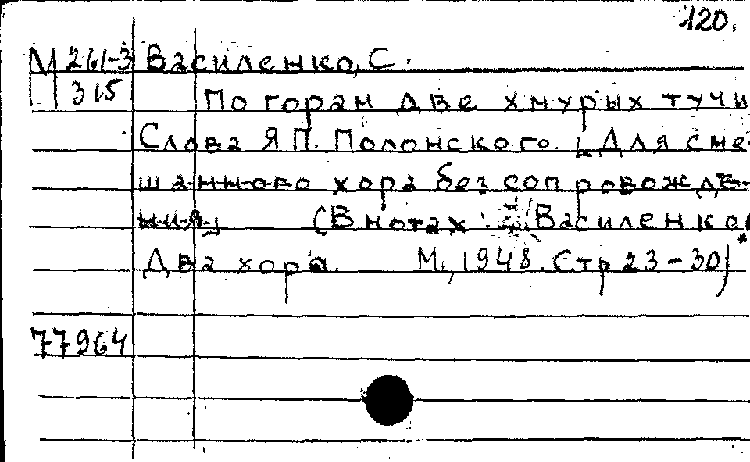 120.
М 261-3 Василенко, С.
315 По горам две хмурых тучи
Слова Я.П. Полонского. [Для сме-
шанного хора без сопровожде-
ния] (В нотах: Василенко
Два хора. М., 1948. Стр 23-30)
77964